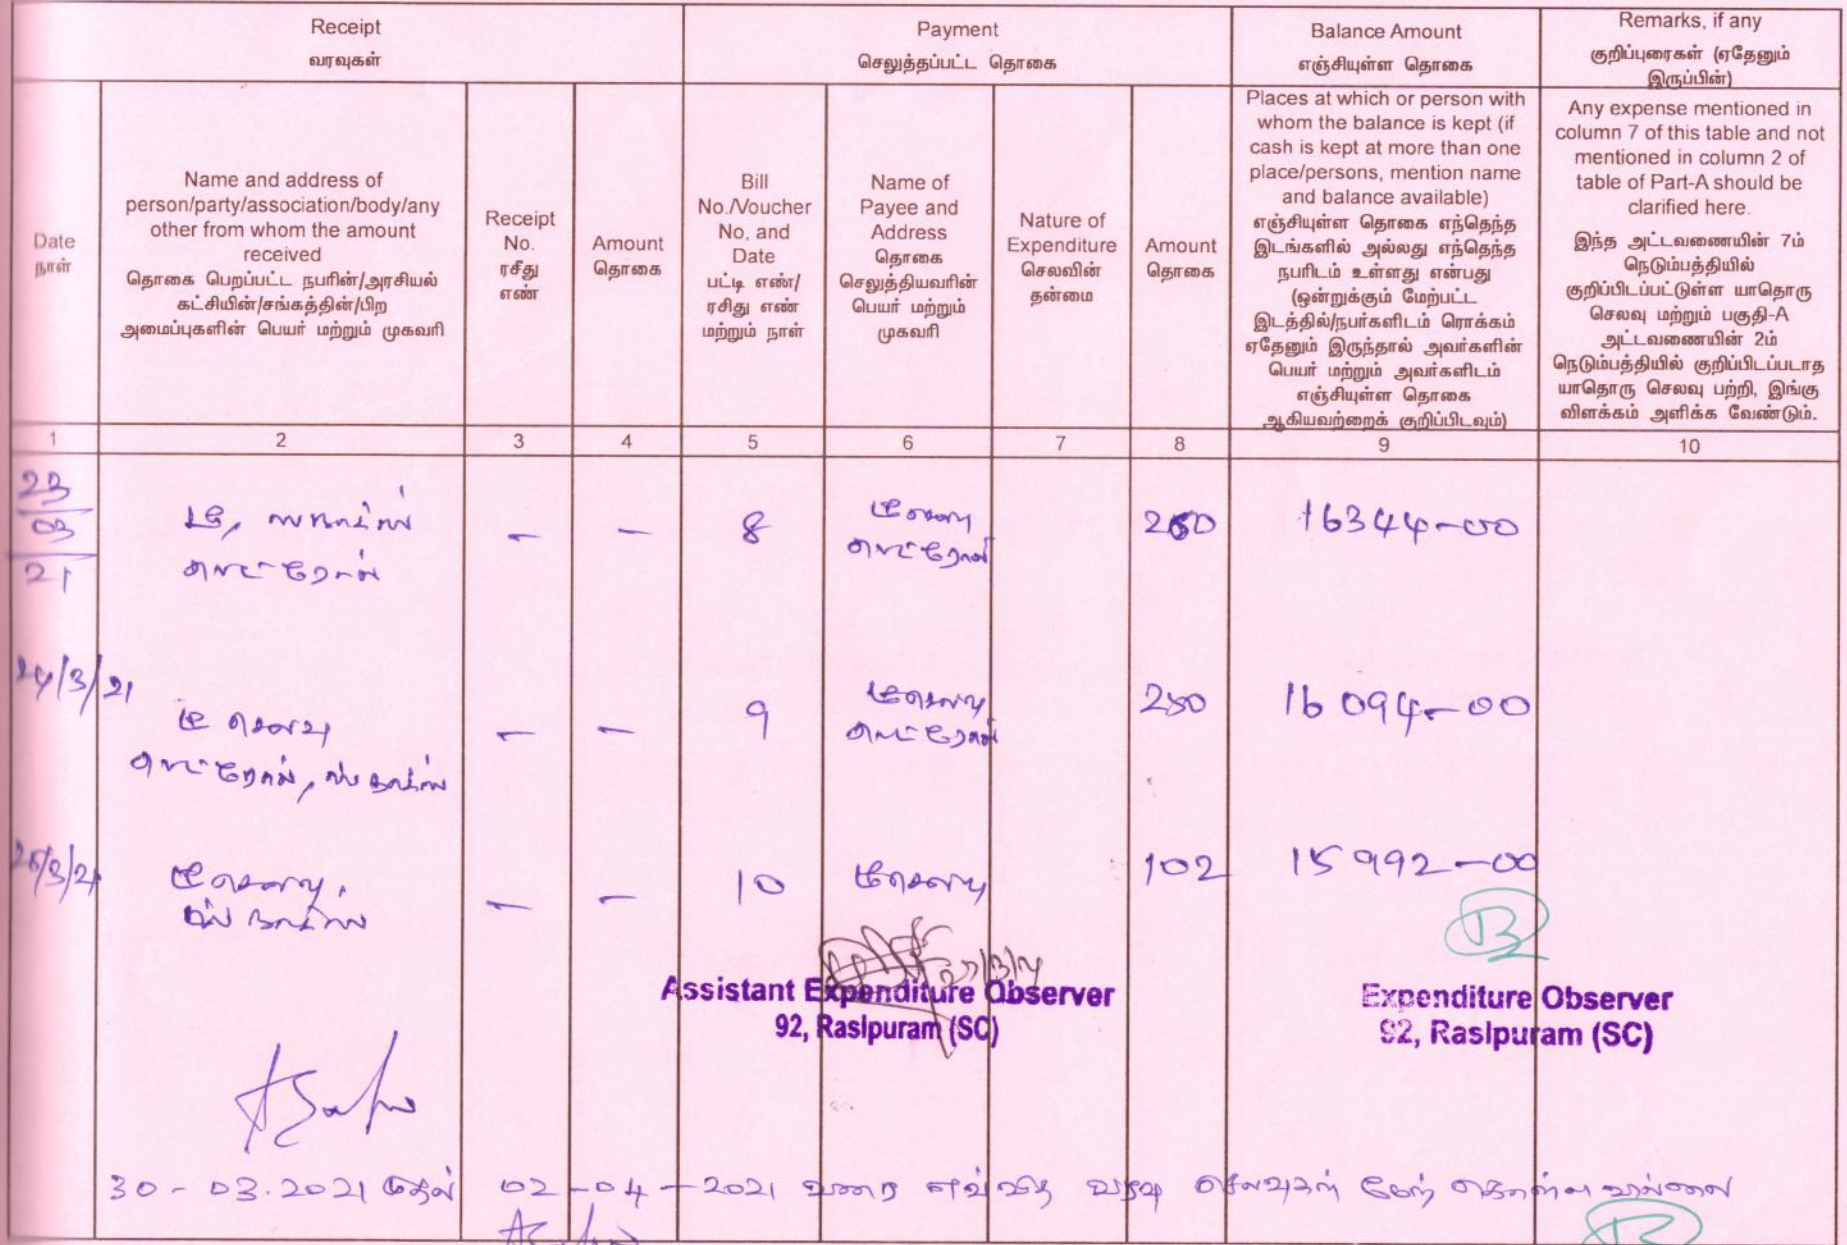 Receipt
வரவுகள்
Payment
செலுத்தப்பட்ட தொகை
Balance Amount
எஞ்சியுள்ள தொகை
Remarks, if any
குறிப்புரைகள் (ஏதேனும்
இருப்பின்)
Date
நாள்
Name and address of
person/party/association/body/any
other from whom the amount
received
தொகை பெறப்பட்ட நபரின்/அரசியல்
கட்சியின்/சங்கத்தின்/பிற
அமைப்புகளின் பெயர் மற்றும் முகவரி
Receipt
No.
ரசீது
எண்
Amount
தொகை
Bill
No./Voucher
No, and
Date
பட்டி எண்/
ரசிது எண்
மற்றும் நாள்
Name of
Payee and
Address
தொகை
செலுத்தியவரின்
பெயர் மற்றும்
முகவரி
Nature of
Expenditure
செலவின்
தன்மை
Amount
தொகை
Places at which or person with
whom the balance is kept (if
cash is kept at more than one
place/persons, mention name
and balance available)
எஞ்சியுள்ள தொகை எந்தெந்த
இடங்களில் அல்லது எந்தெந்த
நபரிடம் உள்ளது என்பது
(ஒன்றுக்கும் மேற்பட்ட
இடத்தில்/நபர்களிடம் ரொக்கம்
ஏதேனும் இருந்தால் அவர்களின்
பெயர் மற்றும் அவர்களிடம்
எஞ்சியுள்ள தொகை
ஆகியவற்றைக் குறிப்பிடவும்)
Any expense mentioned in
column 7 of this table and not
mentioned in column 2 of
table of Part-A should be
clarified here.
இந்த அட்டவணையின் 7ம்
நெடும்பத்தியில்
குறிப்பிடப்பட்டுள்ள யாதொரு
செலவு மற்றும் பகுதி-A
அட்டவணையின் 2ம்
நெடும்பத்தியில் குறிப்பிடப்படாத
யாதொரு செலவு பற்றி, இங்கு
விளக்கம் அளிக்க வேண்டும்.
1 2 3 4 5 6 7 8 9 10
23
03
21
டீ, ஸ்நாக்ஸ் - - 8 டீ செலவு 250 16344-00
24/3/21
டீ செலவு - - 9 டீ செலவு 250 16094-00
ஸ்நாக்ஸ்
3/21
டீ செலவு, - - 10 டீ செலவு 102 15992-00
ஸ்நாக்ஸ்
27/3/21
Assistant Expenditure Observer
92, Rasipuram (SC)
Expenditure Observer
92, Rasipuram (SC)
30-03.2021 முதல் 02-04-2021 வரை எவ்வித வரவு செலவுகள் மேற் கொள்ள வில்லை